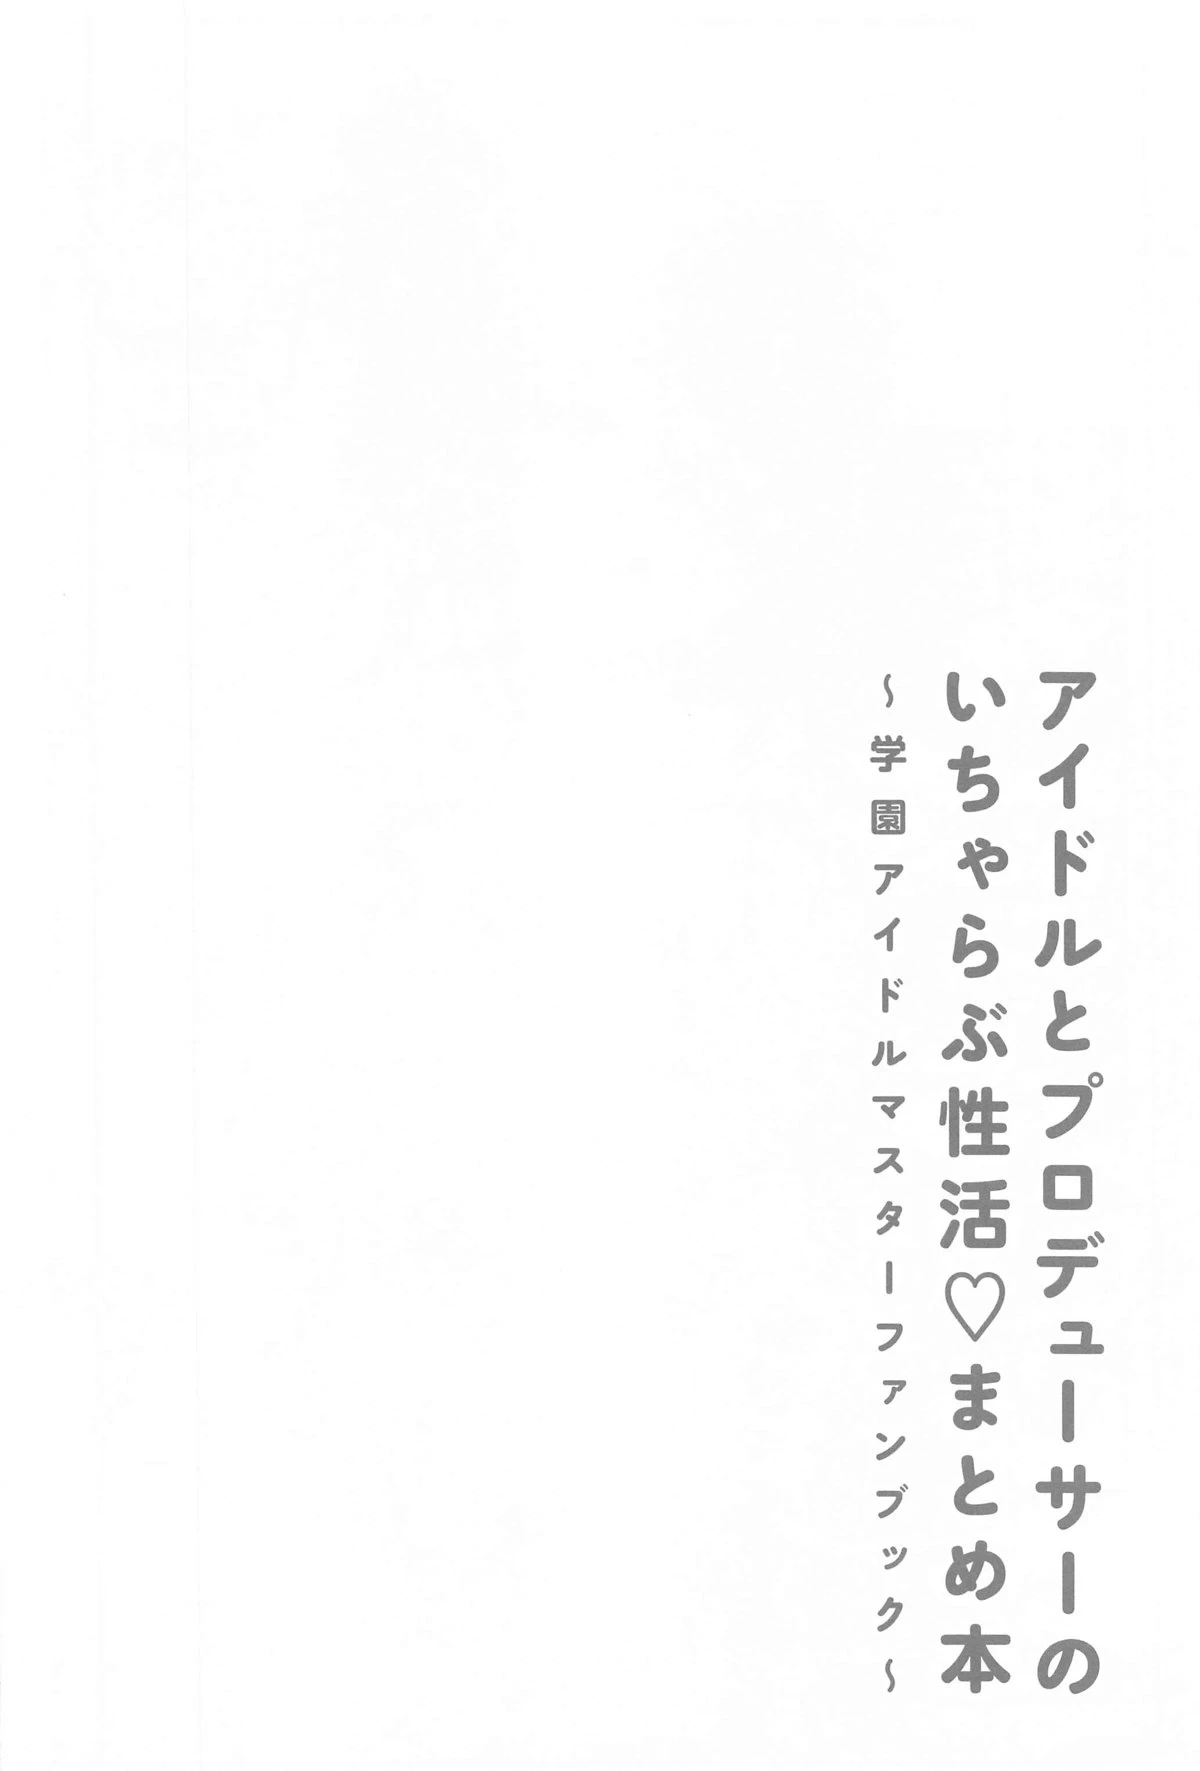 アイドルとプロデューサーの
いちゃらぶ性活♡まとめ本
～学園アイドルマスターファンブック～